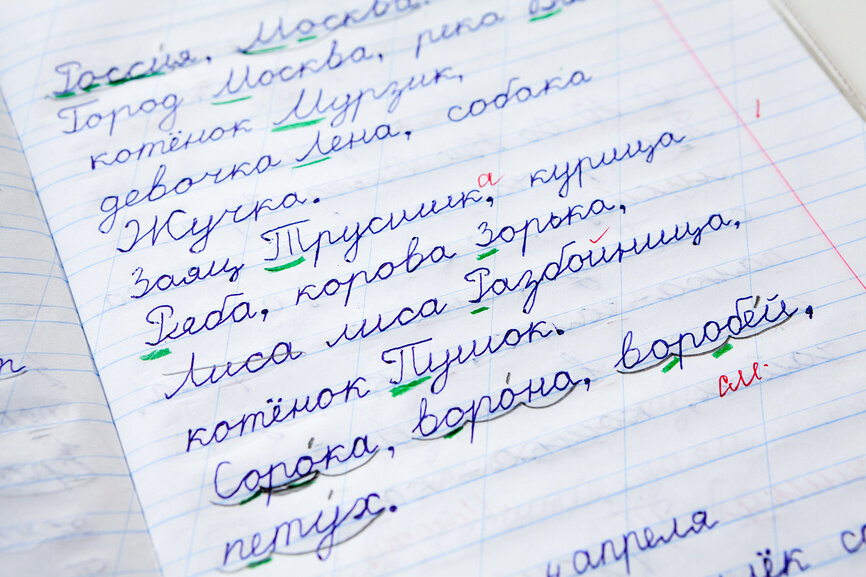 Россия, Москва.
Город Москва, река
котёнок Мурзик,
девочка Лена, собака
Жучка.
Заяц Трусишка, курица
Ряба, корова Зорька,
Лиса лиса Разбойница,
котёнок Пушок.
Сорока, ворона, воробей,
см.
петух.
апреля